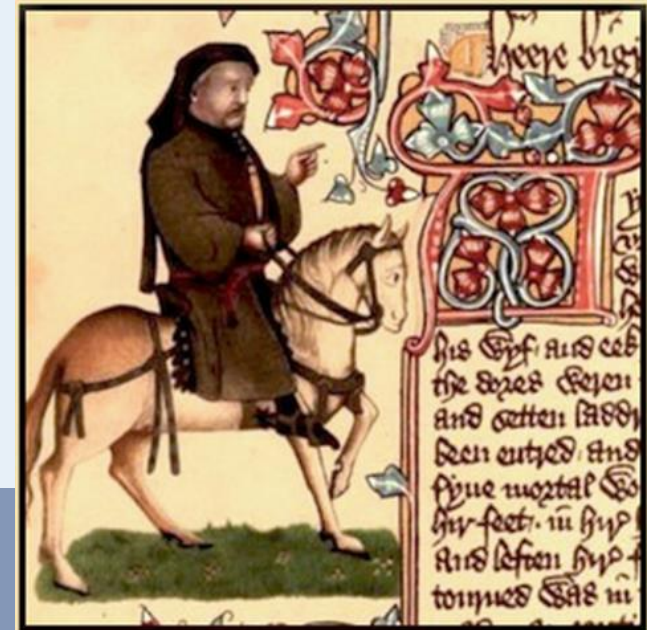 heere bigy
his Wyf· and eek
the dores Weren
and setten laddr
been entred· and
fyue mortal Wo
hir feet· in hir
And leften hir f
tourned Was in